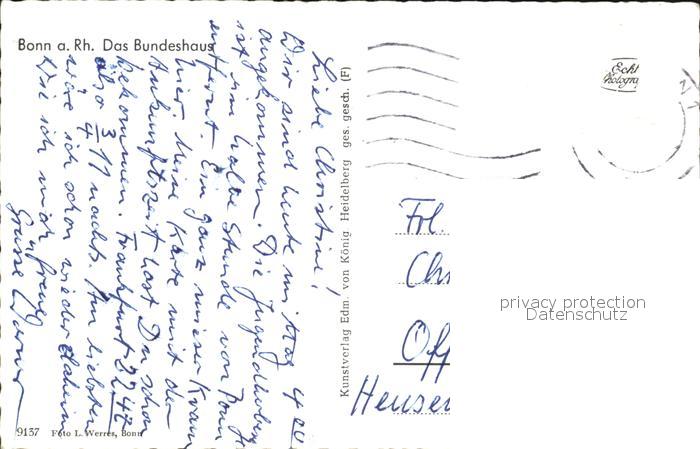 Bonn a. Rh. Das Bundeshaus
Liebe Christine!
Wir sind heute um 4 00
angekommen. Die Jugendherberge
ist eine halbe Stunde von Bonn
entfernt. Ein ganz mieser Kram
hier. Meine Karte mit der
Ankunftszeit hast Du schon
bekommen. Frankfurt 22 42
also 3/4 11 nachts. Am liebsten
wäre ich schon wieder daheim
Wie ich mich freue
Grüsse
Kunstverlag Edm. von König Heidelberg ges. gesch. (F)
Echt
Photogra
Frl.
Chr
Off
Heusen
privacy protection
Datenschutz
9137 Foto L. Werres, Bonn